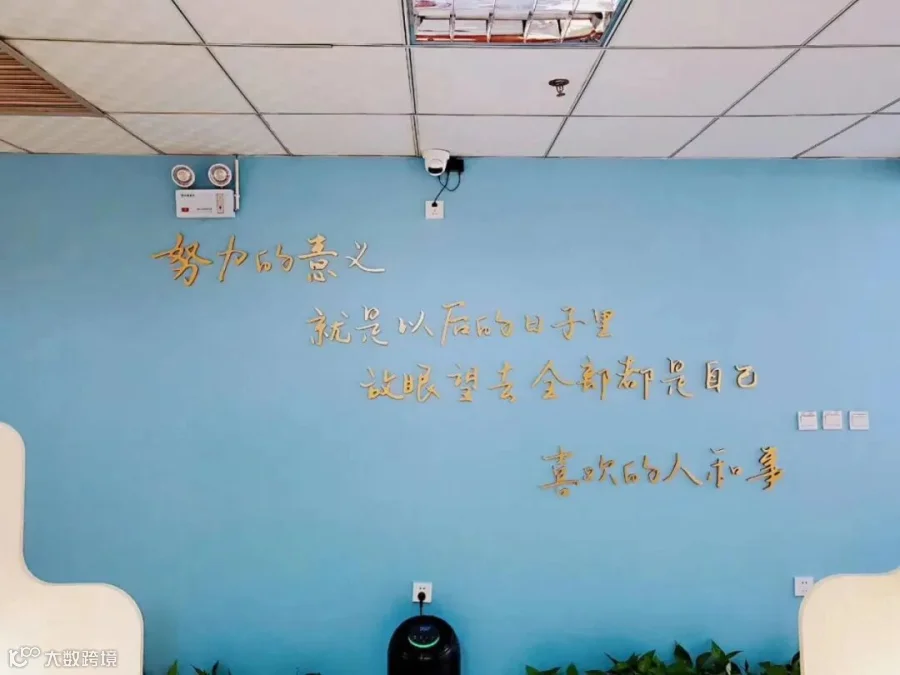 努力的意义
就是以后的日子里
放眼望去全部都是自己
喜欢的人和事
大数跨境